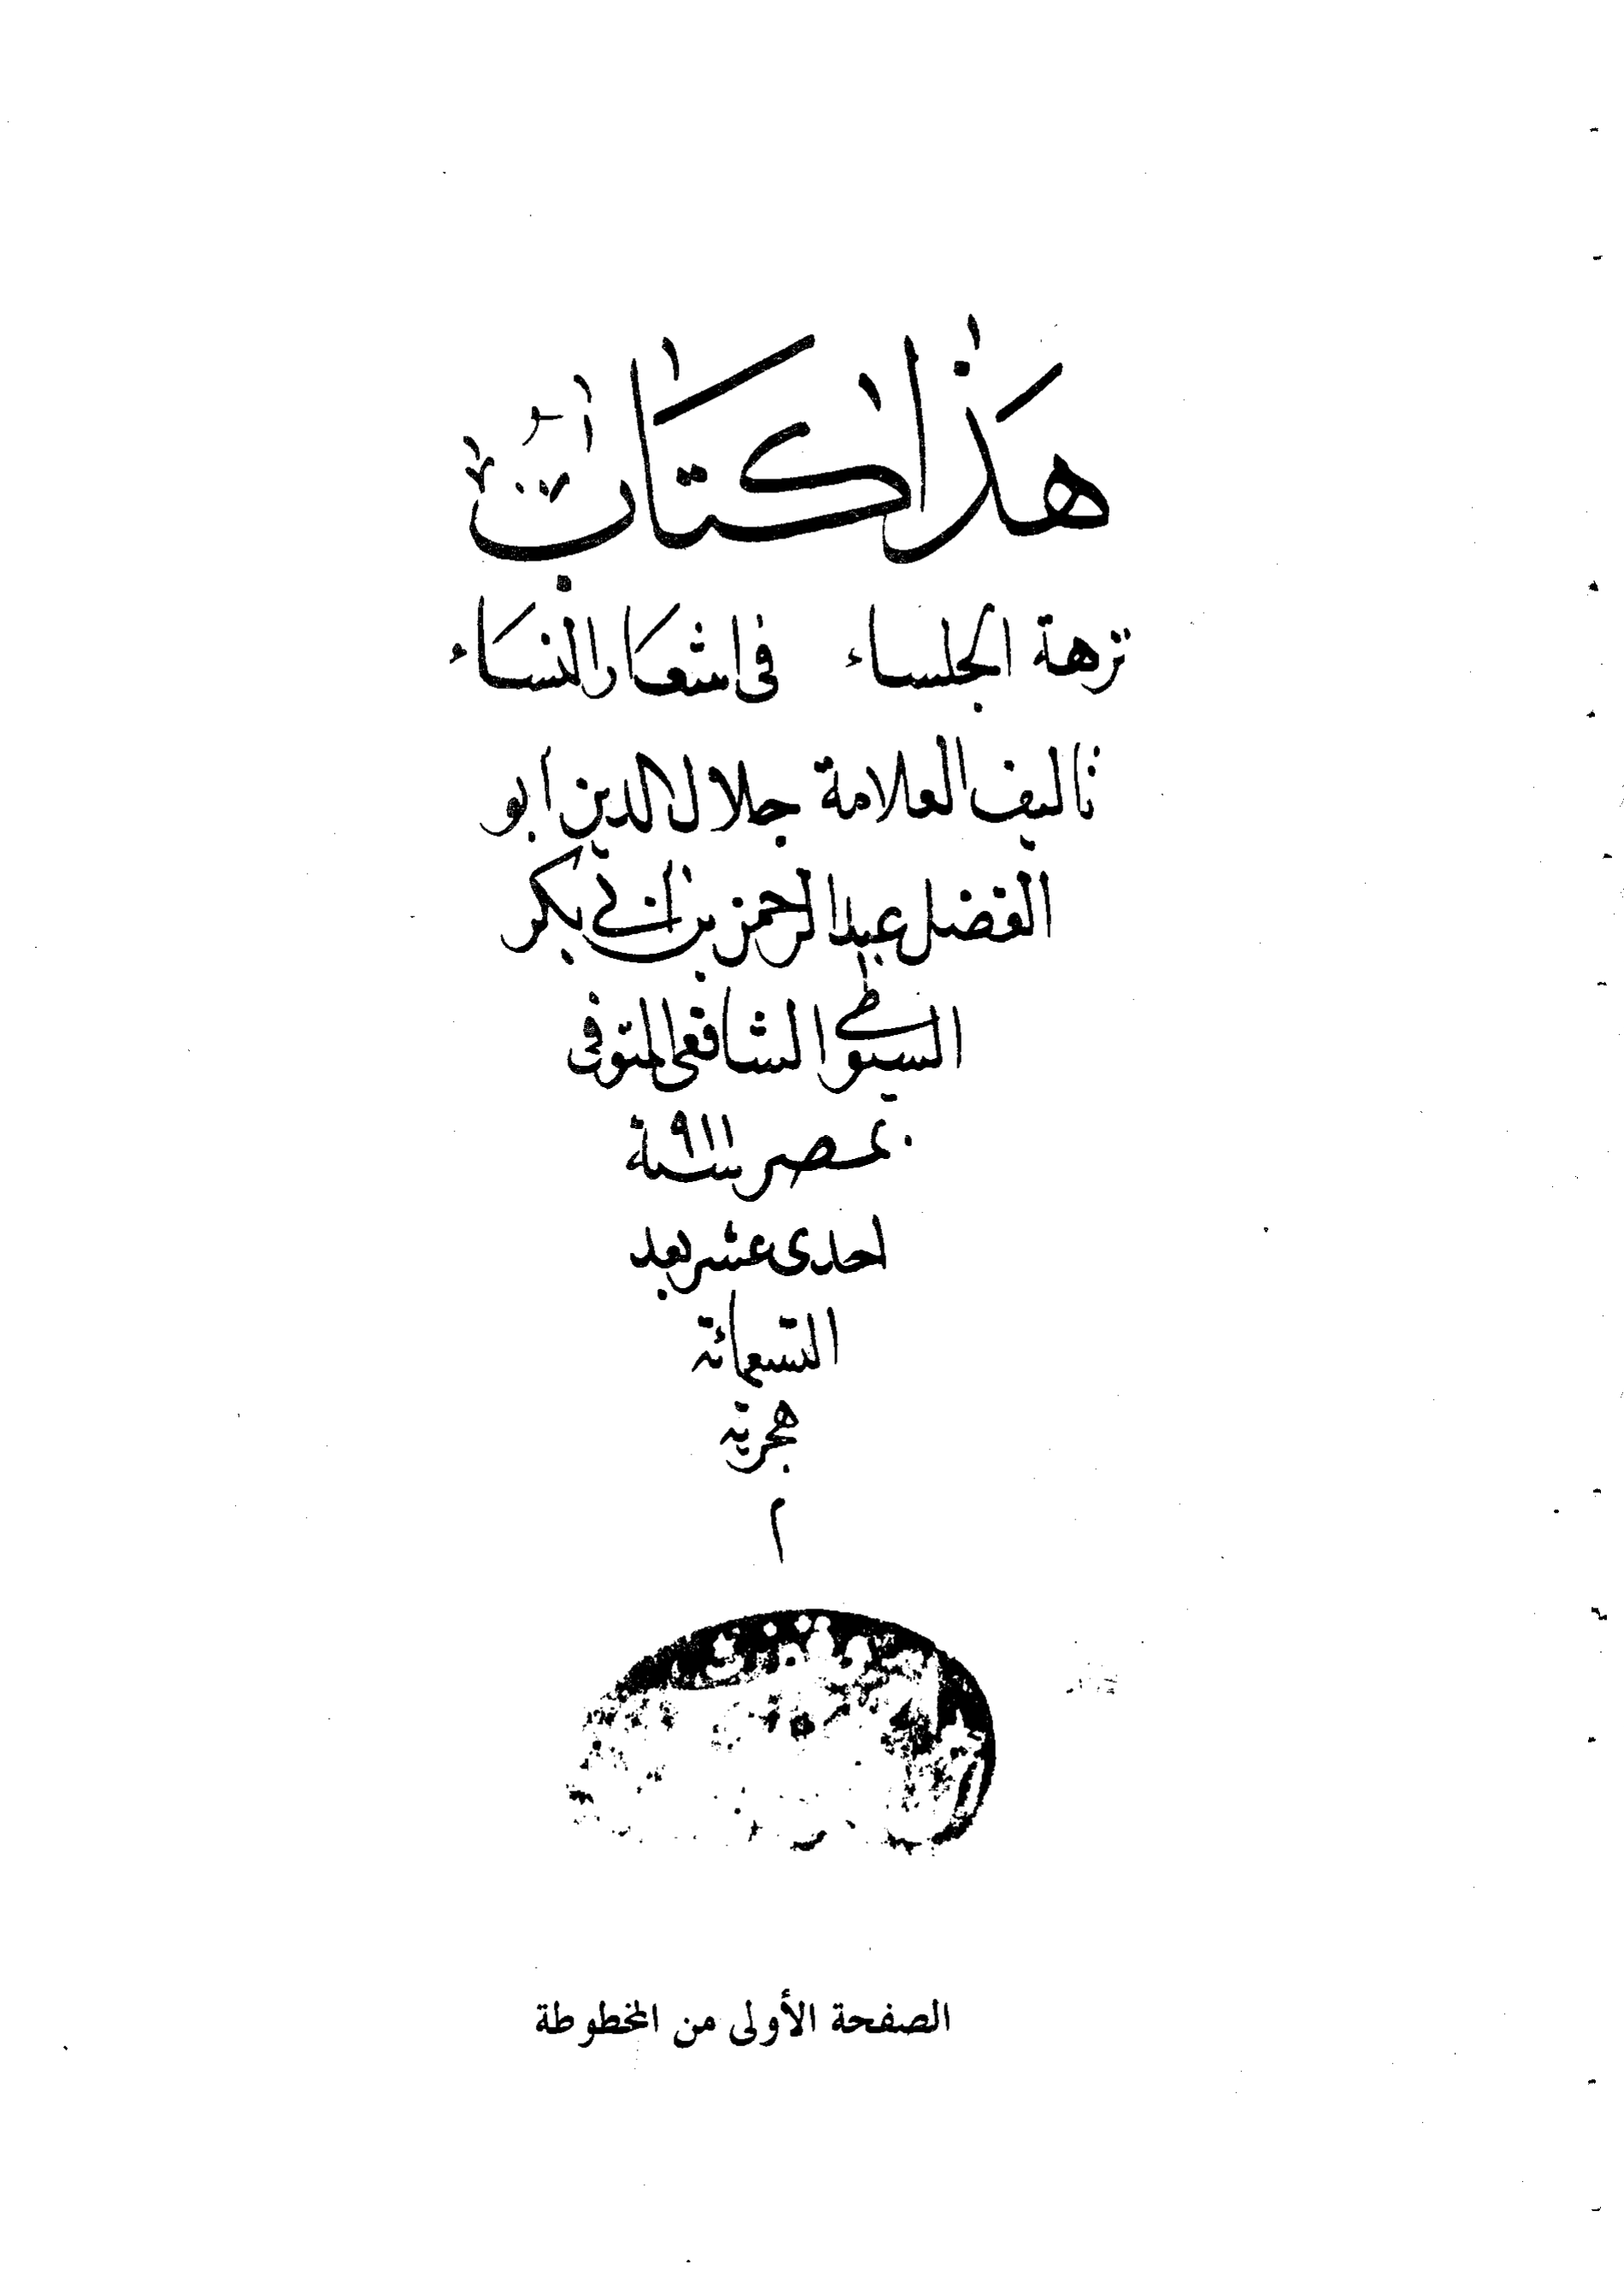 هذا كتاب
نزهة الجلساء في اشعار النساء
تاليف العلامة جلال الدين ابو
الفضل عبد الرحمن بن ابي بكر
السيوطي الشافعي المتوفى
بمصر سنة ٩١١
احدى عشر بعد
التسعمائة
هجرية
م
الصفحة الأولى من المخطوطة